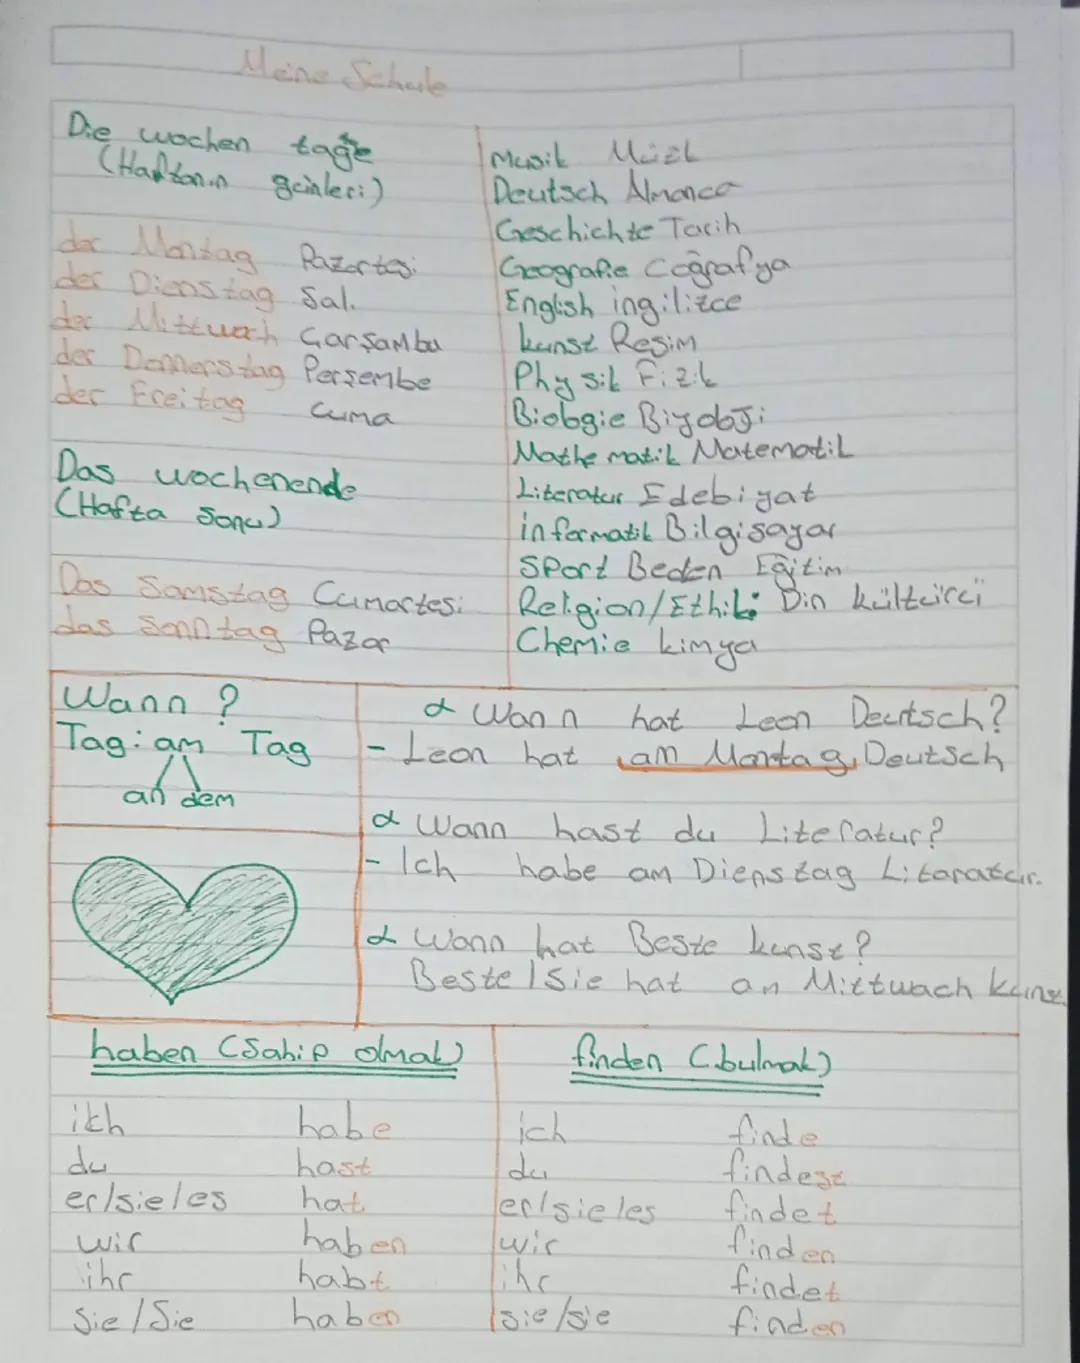 Meine Schule
Die wochen tage
(Haftanın günleri)
der Montag Pazartesi
der Dienstag Salı
der Mittwoch Çarşamba
der Donnerstag Perşembe
der Freitag Cuma
Das wochenende
(Hafta Sonu)
Das Samstag Cumartesi
das Sonntag Pazar
Musik Müzik
Deutsch Almanca
Geschichte Tarih
Geografie Coğrafya
English ingilizce
kunst Resim
Physik Fizik
Biologie Biyoloji
Mathematik Matematik
Literatur Edebiyat
informatik Bilgisayar
Sport Beden Eğitim
Religion/Ethik: Din kültürü
Chemie kimya
Wann ?
Tag: am Tag
an dem
α Wann hat Leon Deutsch?
- Leon hat am Montag Deutsch
α Wann hast du Literatur?
- Ich habe am Dienstag Litaratur.
α Wann hat Beste kunst?
Beste / Sie hat an Mittwach kunst
haben (Sahip olmak)
ich habe
du hast
er/sie/es hat
wir haben
ihr habt
sie/Sie haben
finden (bulmak)
ich finde
du findest
er/sie/es findet
wir finden
ihr findet
sie/sie finden